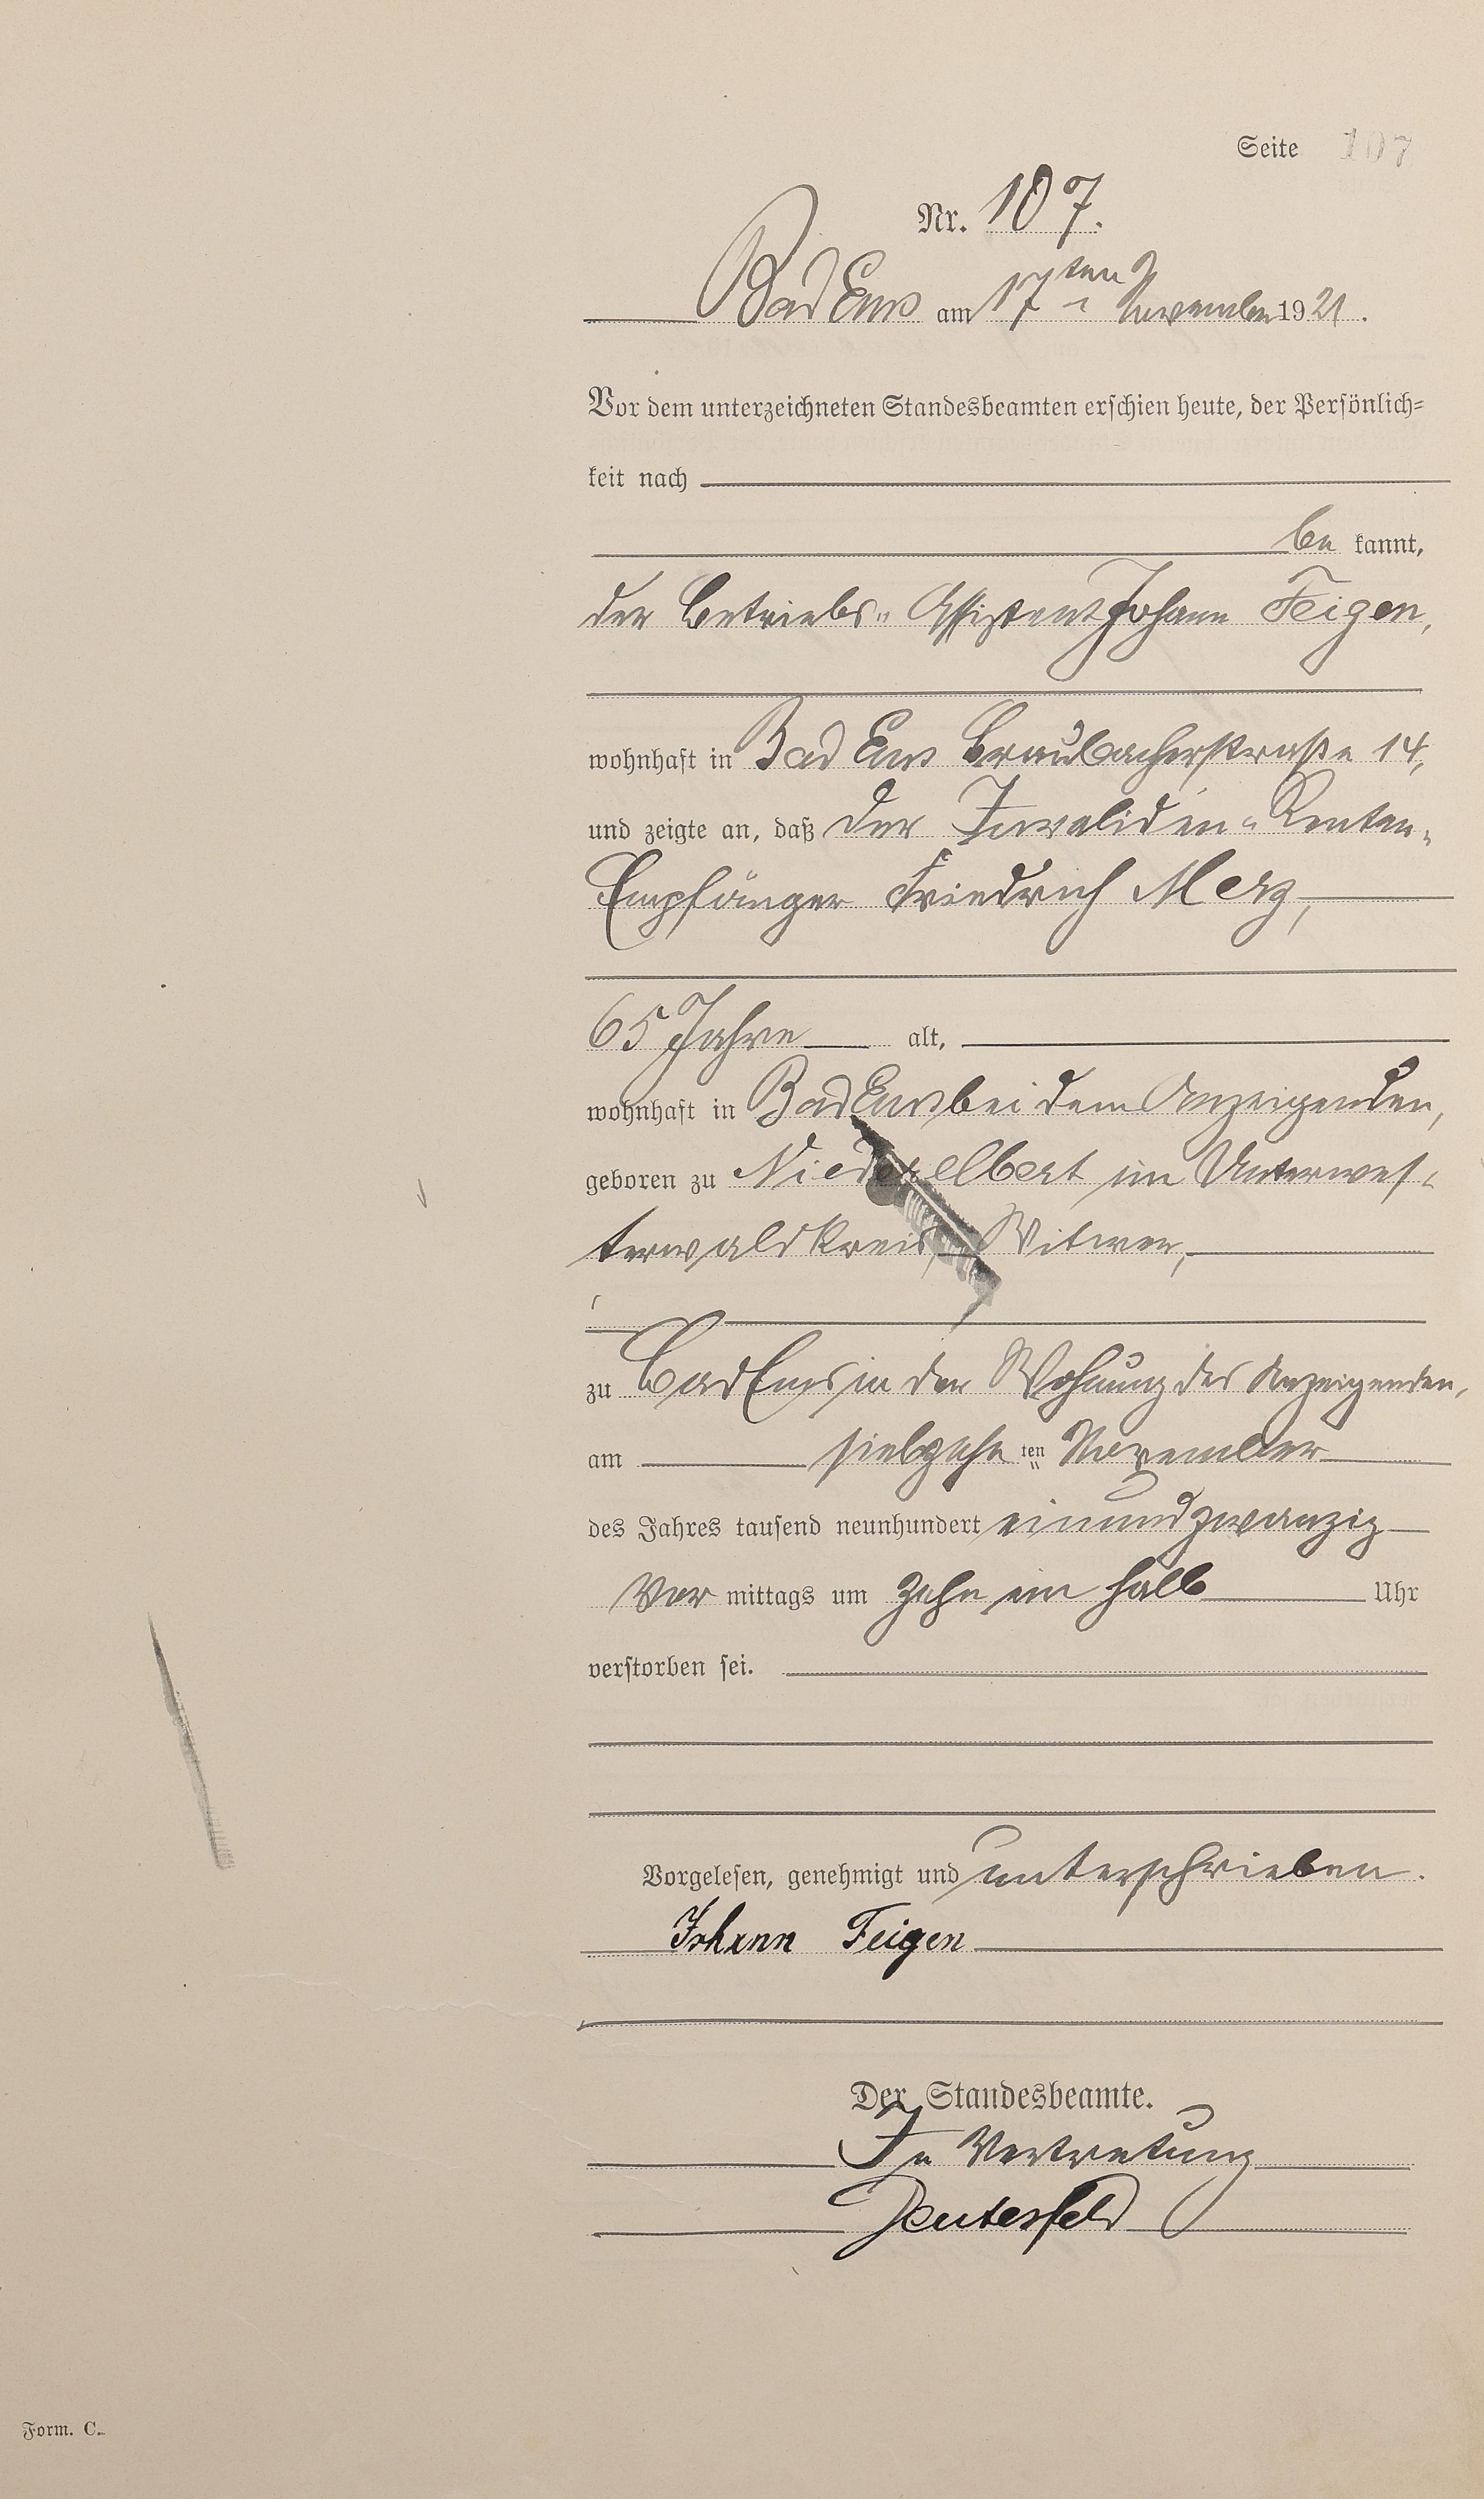 Seite 107
Nr. 107.
Bad Ems am 17ten November 1921.
Vor dem unterzeichneten Standesbeamten erschien heute, der Persönlich-
keit nach
be kannt,
der Betriebs-Assistent Johann Feigen,
wohnhaft in Bad Ems Braubacherstraße 14,
und zeigte an, daß der Invaliden-Renten-
Empfänger Friedrich Merz,
65 Jahre alt,
wohnhaft in Bad Ems bei dem Anzeigenden,
geboren zu Niederelbert im Unterwes-
terwaldkreis, Witwer,
zu Bad Ems in der Wohnung des Anzeigenden,
am siebzehnten November
des Jahres tausend neunhundert einundzwanzig
Vor mittags um zehn ein halb Uhr
verstorben sei.
Vorgelesen, genehmigt und unterschrieben.
Johann Feigen
Der Standesbeamte.
In Vertretung
Form. C.